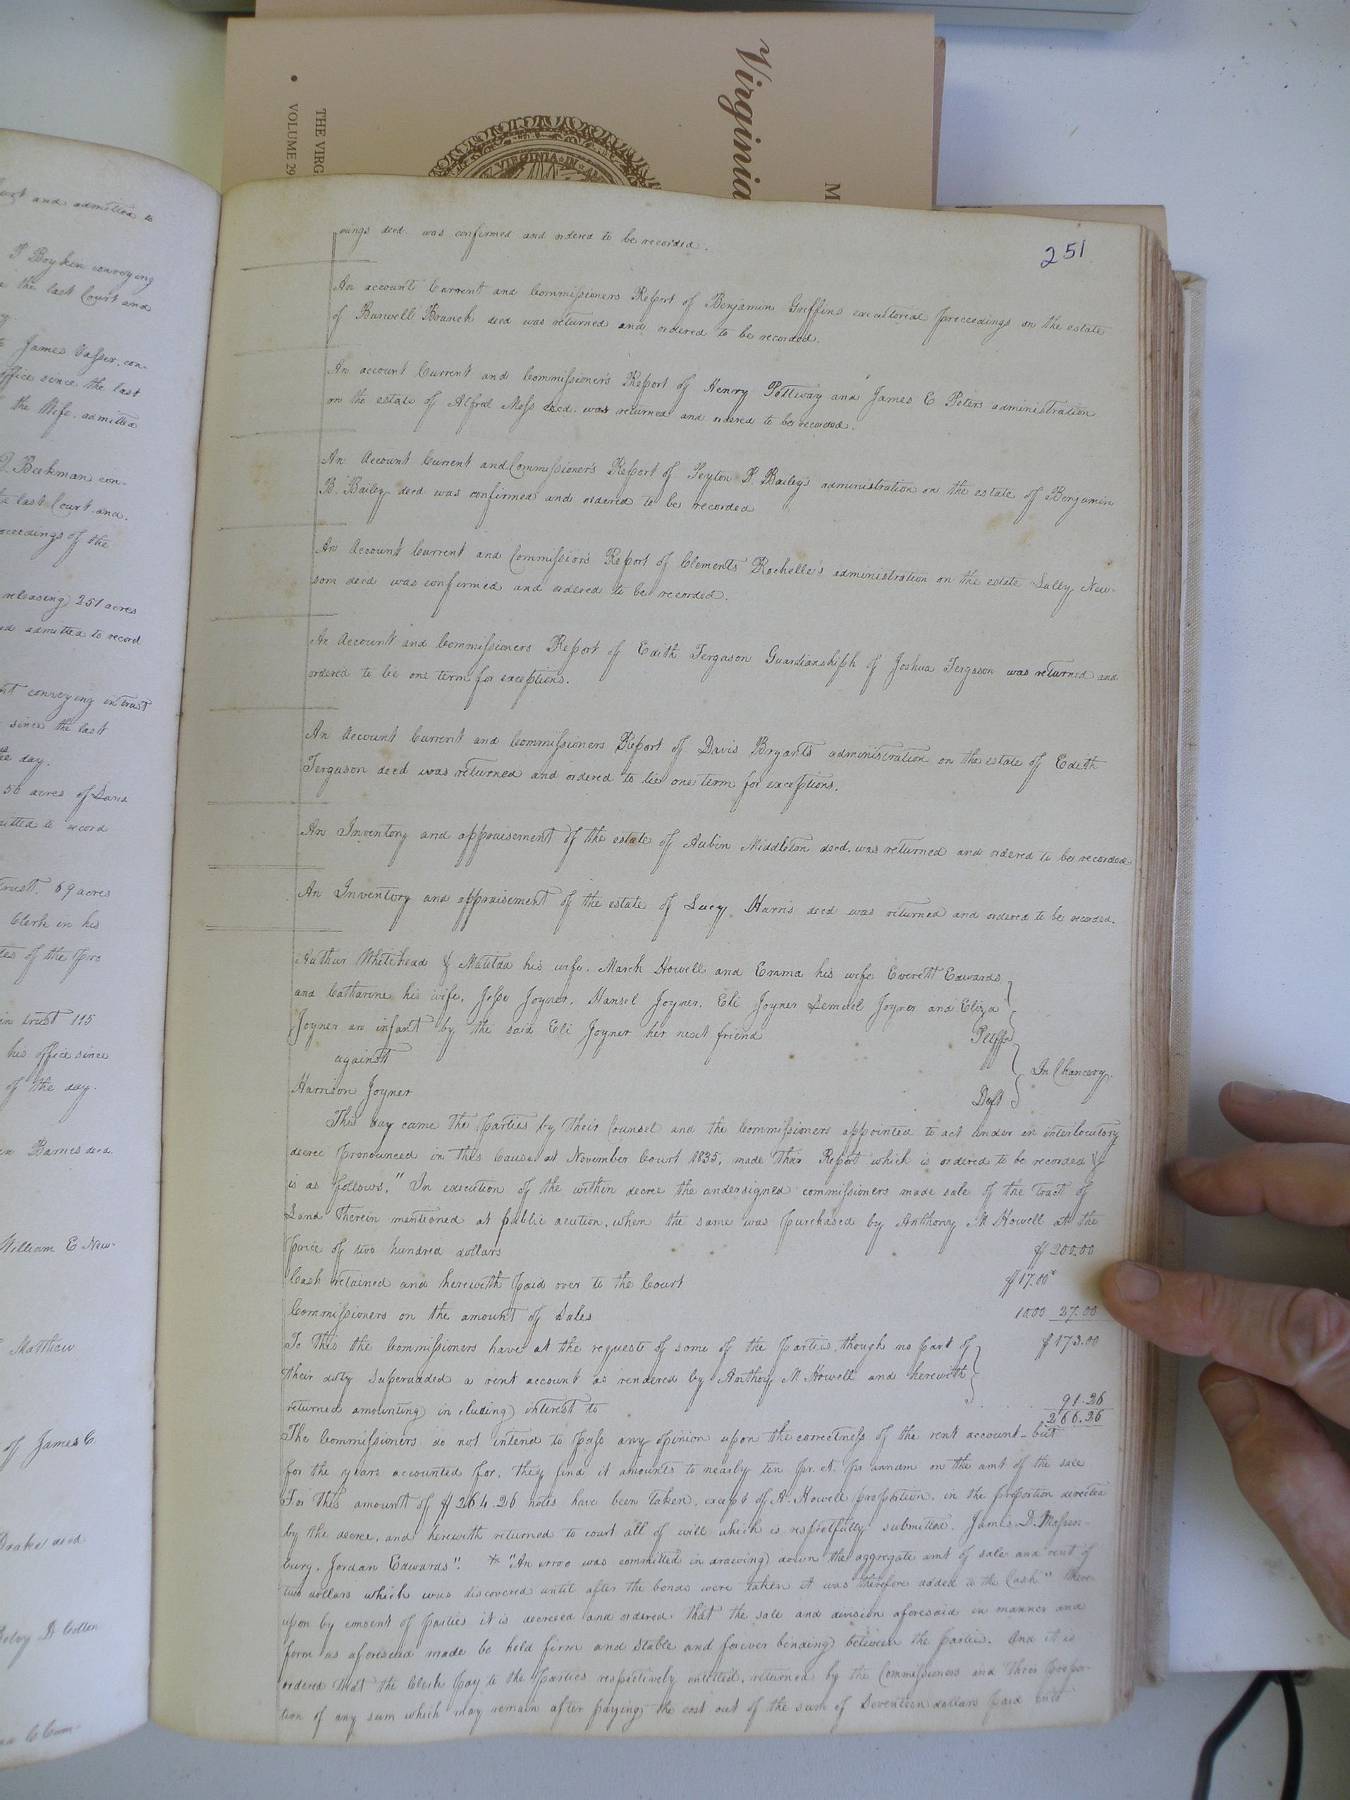 Virginia
M
THE VIRG
VOLUME 29
VIRGINIA IN
251
and admitted to
T Boykin conveying
the last Court and
James Vasser, con-
office since the last
the Wife admitted
Beekman con-
last Court and
proceedings of the
releasing 251 acres
admitted to record
conveying in trust
since the last
the day.
50 acres of Land
admitted to record
trust. 69 acres
Clerk in his
of the pro
in trust 115
his office since
of the day.
Barnes decd.
William E New-
Matthew
of James C
Drake decd
B. Cotten
ings decd. was confirmed and ordered to be recorded.
An account Current and Commissioners Report of Benjamin Griffins executorial proceedings on the estate
of Burwell Branch decd was returned and ordered to be recorded.
An account Current and Commissioner's Report of Henry Pettway and James E Peters administration
on the estate of Alfred Moss decd. was returned and ordered to be recorded.
An Account Current and Commissioner's Report of Peyton P. Bailey's administration on the estate of Benjamin
B. Bailey decd was confirmed and ordered to be recorded
An Account Current and Commissions Report of Clements Rochelle's administration on the estate Sally New-
som decd was confirmed and ordered to be recorded.
An Account and Commissioners Report of Edith Ferguson Guardianshiph of Joshua Ferguson was returned and
ordered to lie one term for exceptions.
An Account Current and Commissioners Report of Davis Bryants administration on the estate of Edith
Ferguson decd was returned and ordered to lie one term for exceptions.
An Inventory and appraisement of the estate of Aubin Middleton decd. was returned and ordered to be recorded
An Inventory and appraisement of the estate of Lucy Harris decd was returned and ordered to be recorded.
Arthur Whitehead & Matilda his wife, March Howell and Emma his wife Everett Edwards
and Catharine his wife, Jesse Joyner, Hansel Joyner, Eli Joyner Lemuel Joyner and Eliza
Joyner an infant by the said Eli Joyner her next friend Pltffs
against In Chancery.
Harrison Joyner Deft
This day came the parties by their Counsel and the Commissioners appointed to act under an interlocutory
decree pronounced in this Cause at November Court 1835, made their Report which is ordered to be recorded &
is as follows, "In execution of the within decree the undersigned commissioners made sale of the tract of
Land therein mentioned at public auction, when the same was purchased by Anthony M Howell at the
price of two hundred dollars $200.00
Cash retained and herewith paid over to the Court $17.00*
Commissioners on the amount of Sales 10.00 27.00
To this the Commissioners have at the requests of some of the parties, though no part of $173.00
their duty Superadded a rent account as rendered by Anthony M Howell and herewith
returned amounting including interest to 91.26
266.26
The Commissioners do not intend to pass any opinion upon the correctness of the rent account - but
for the years accounted for, they find it amounts to nearly ten pr. ct. pr annum on the amt of the sale
For this amount of $264.26 notes have been taken, except of A. Howell proportion, in the proportion directed
by the decree, and herewith returned to court all of will which is respectfully submitted. James D. Massen-
burg, Jordan Edwards". * "An error was committed in drawing down the aggregate amt of sale and rent of
two dollars which was discovered until after the bonds were taken it was therefore added to the Cash" there-
upon by consent of parties it is decreed and ordered that the sale and division aforesaid in manner and
form as aforesaid made be held firm and stable and forever binding between the parties. And it is
ordered that the Clerk pay to the parties respectively entitled, returned by the Commissioners and their propor-
tion of any sum which may remain after paying the cost out of the sum of Seventeen dollars paid into